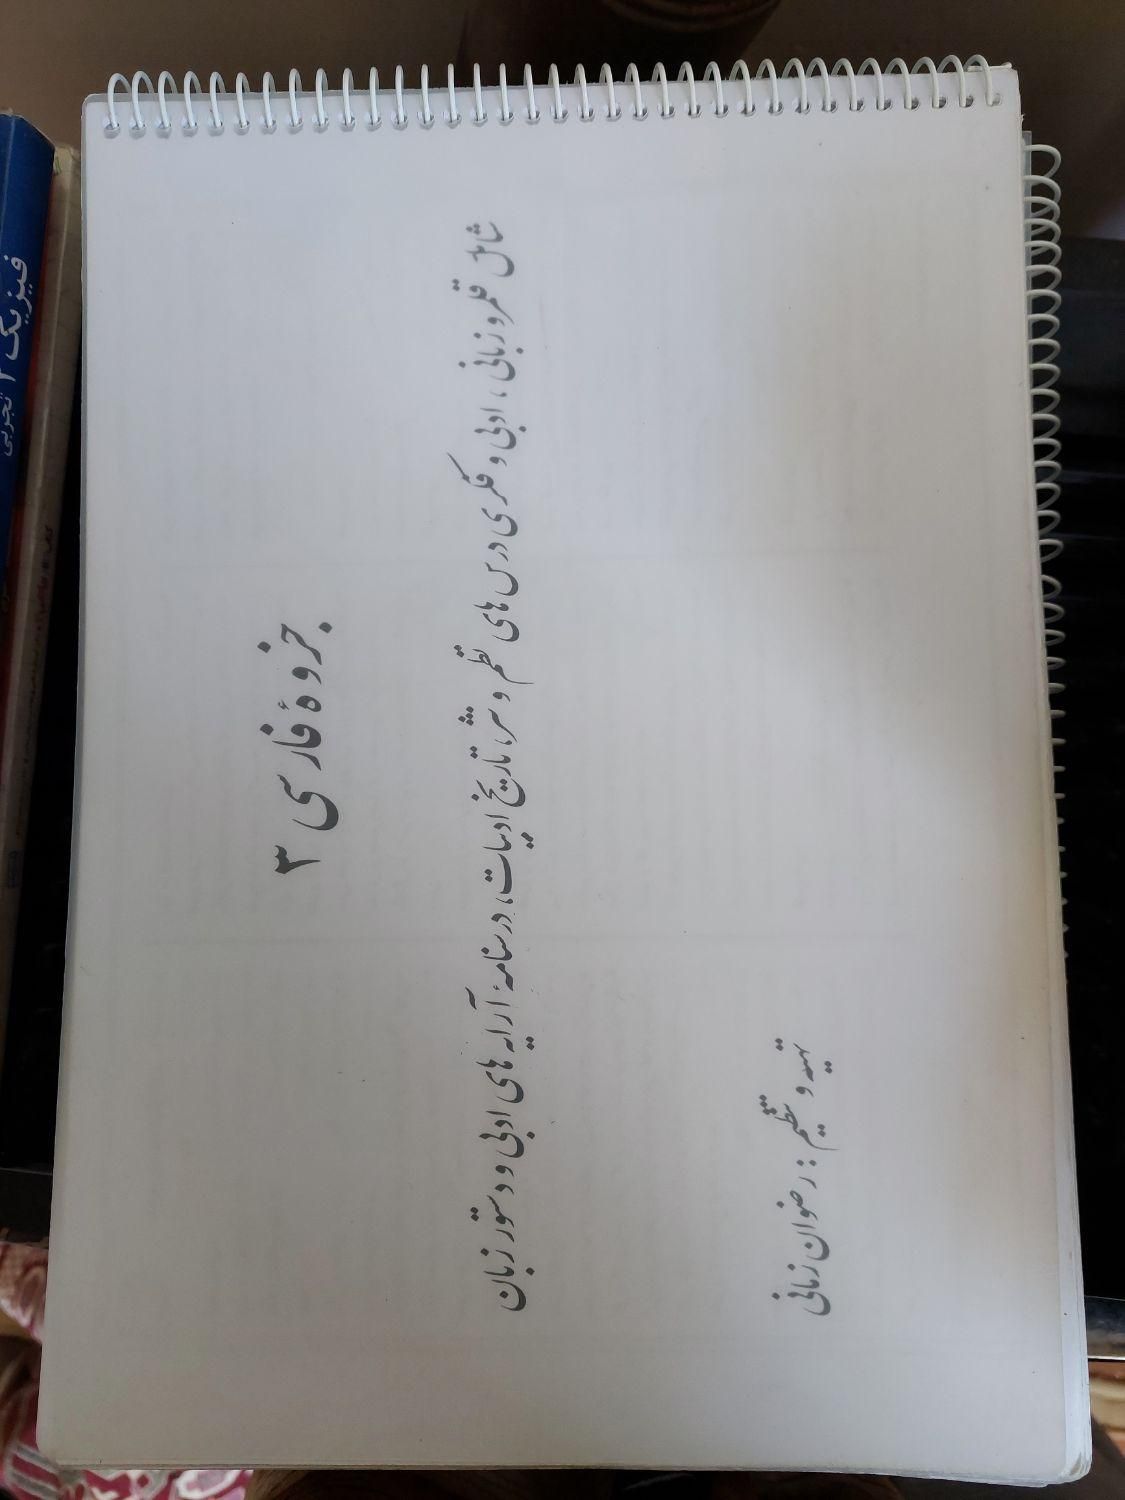 جزوهٔ فارسی ۳
شامل قلمرو زبانی، ادبی و فکری درس های نظم و نثر، تاریخ ادبیات، درسنامهٔ آرایه های ادبی و دستور زبان
تهیه و تنظیم : رضوان زمانی
فیزیک ۲ تجربی